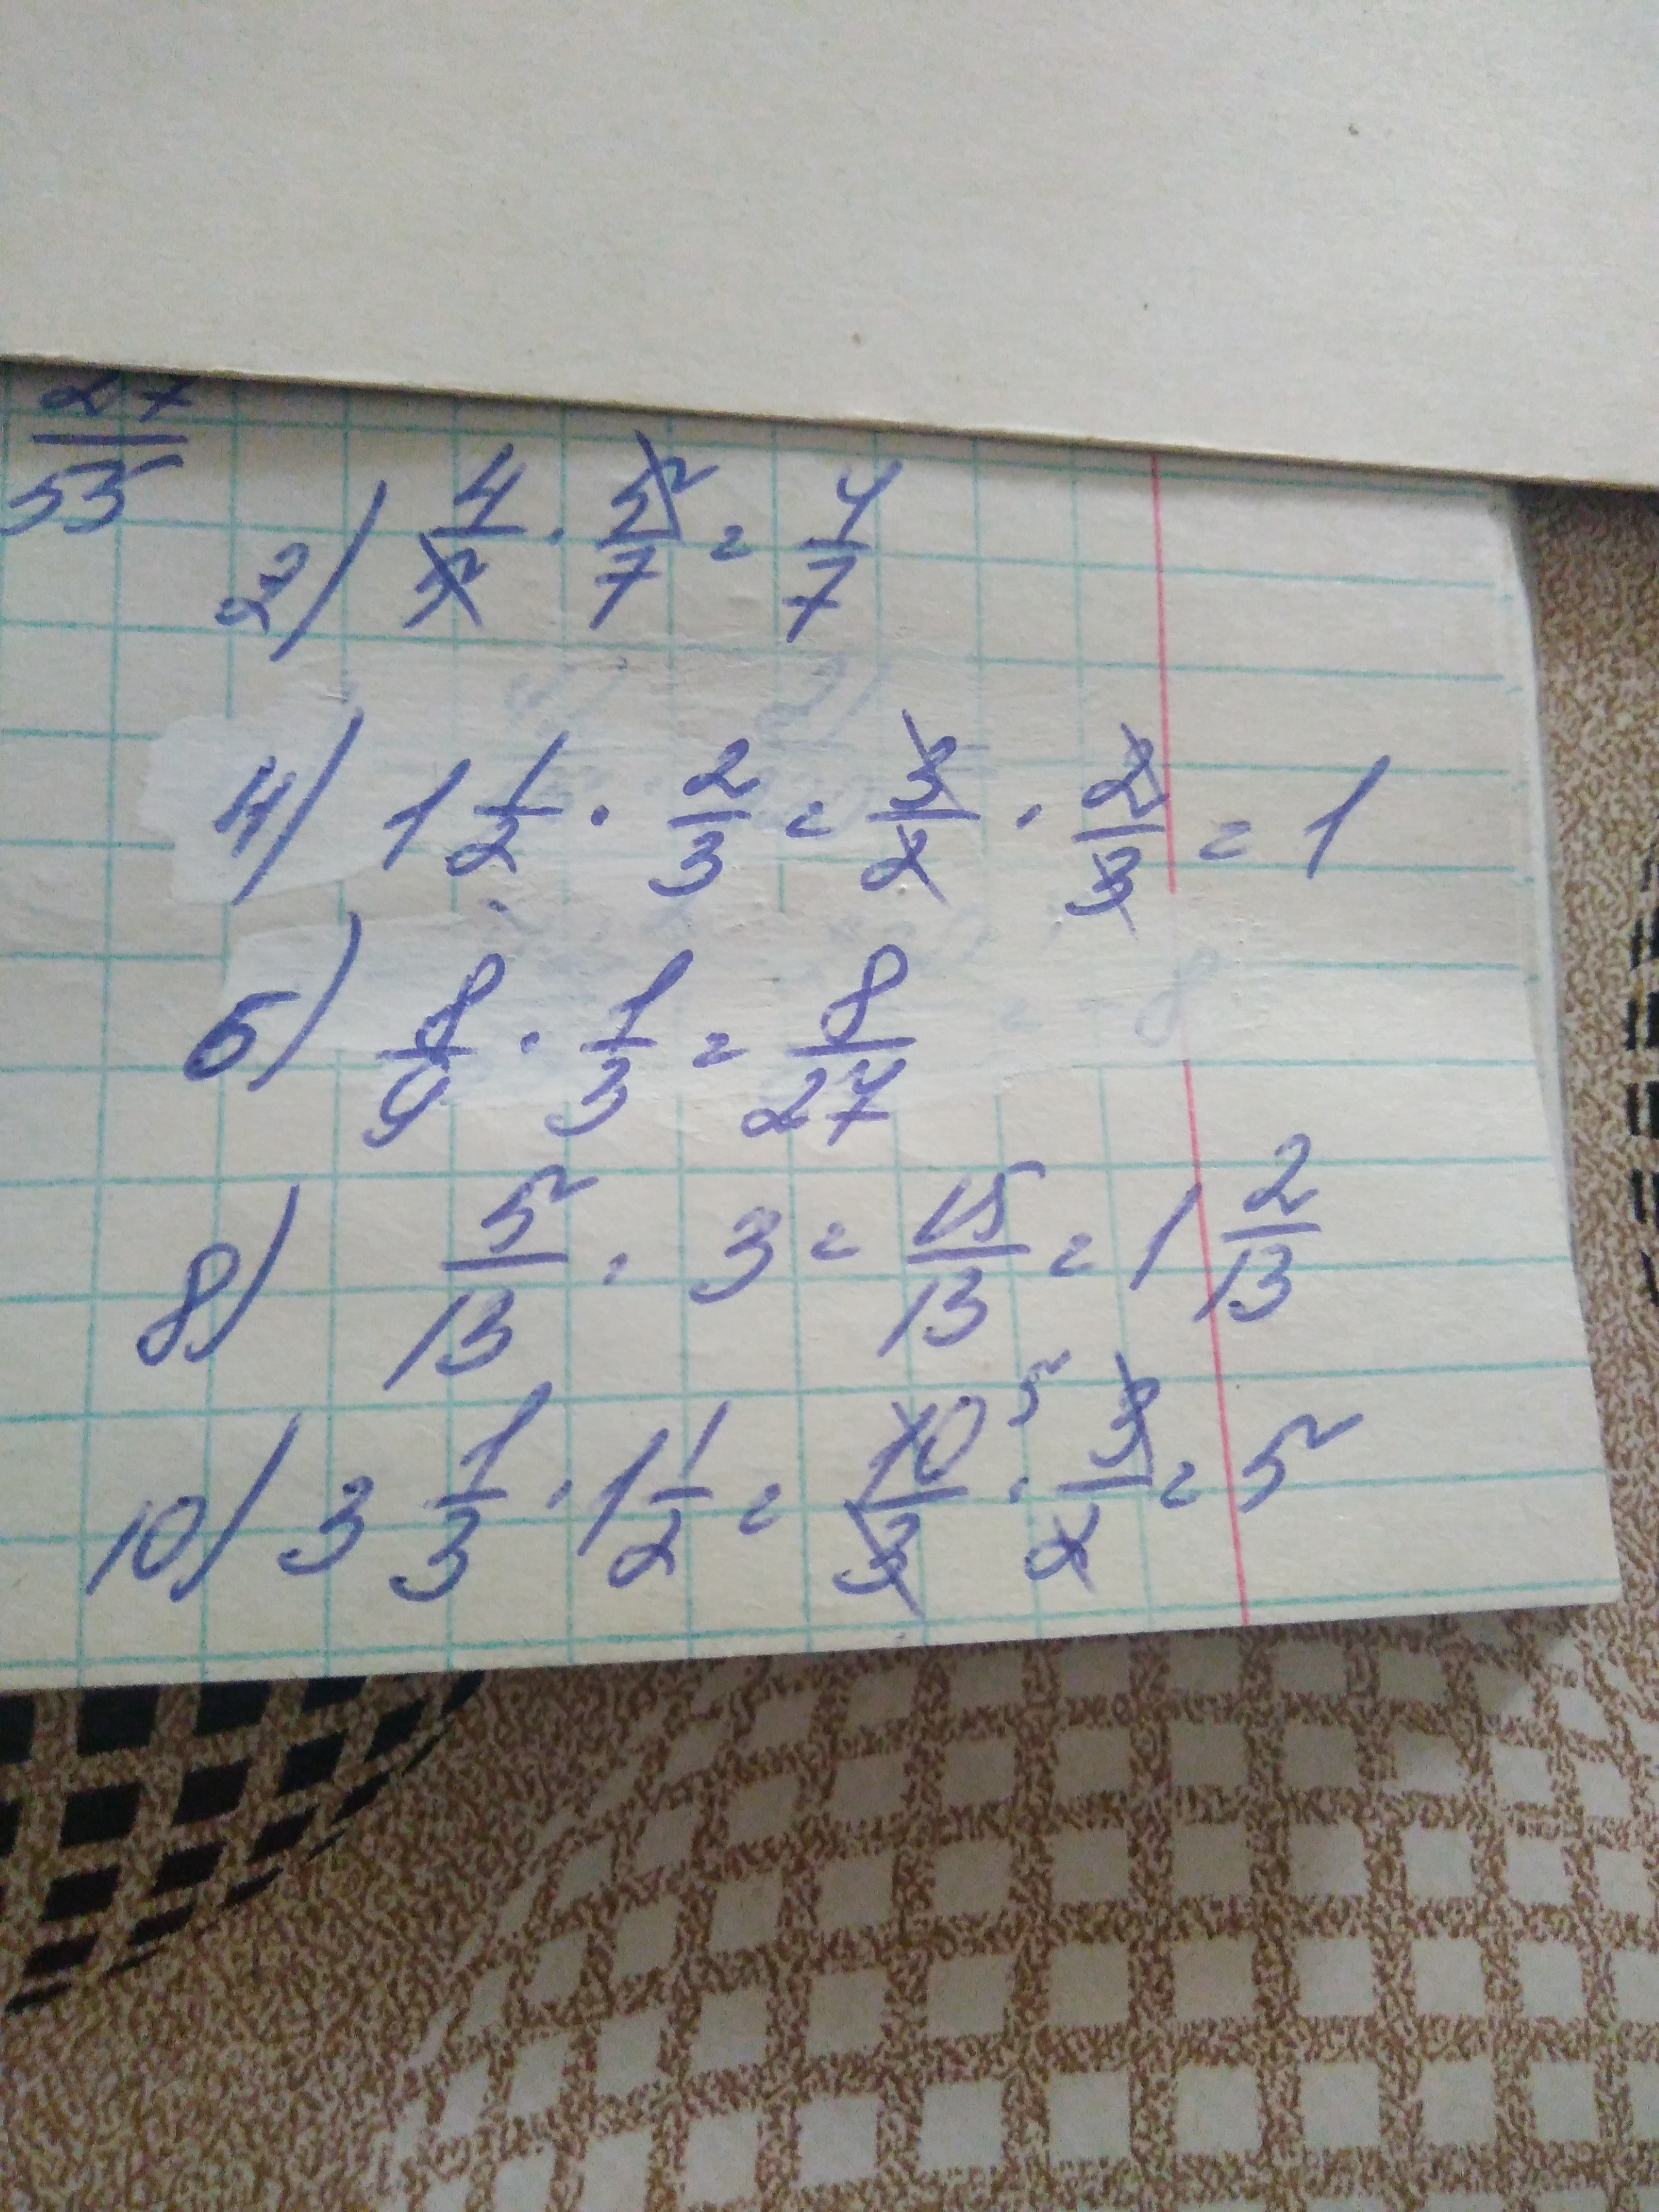 27/55
2) 4/5 · 5/7 = 4/7
4) 1 1/2 · 2/3 = 3/2 · 2/3 = 1
6) 8/9 · 1/3 = 8/27
8) 5/13 · 3 = 15/13 = 1 2/13
10) 3 1/3 · 1 1/2 = 10/3 ⁵ · 3/2 = 5